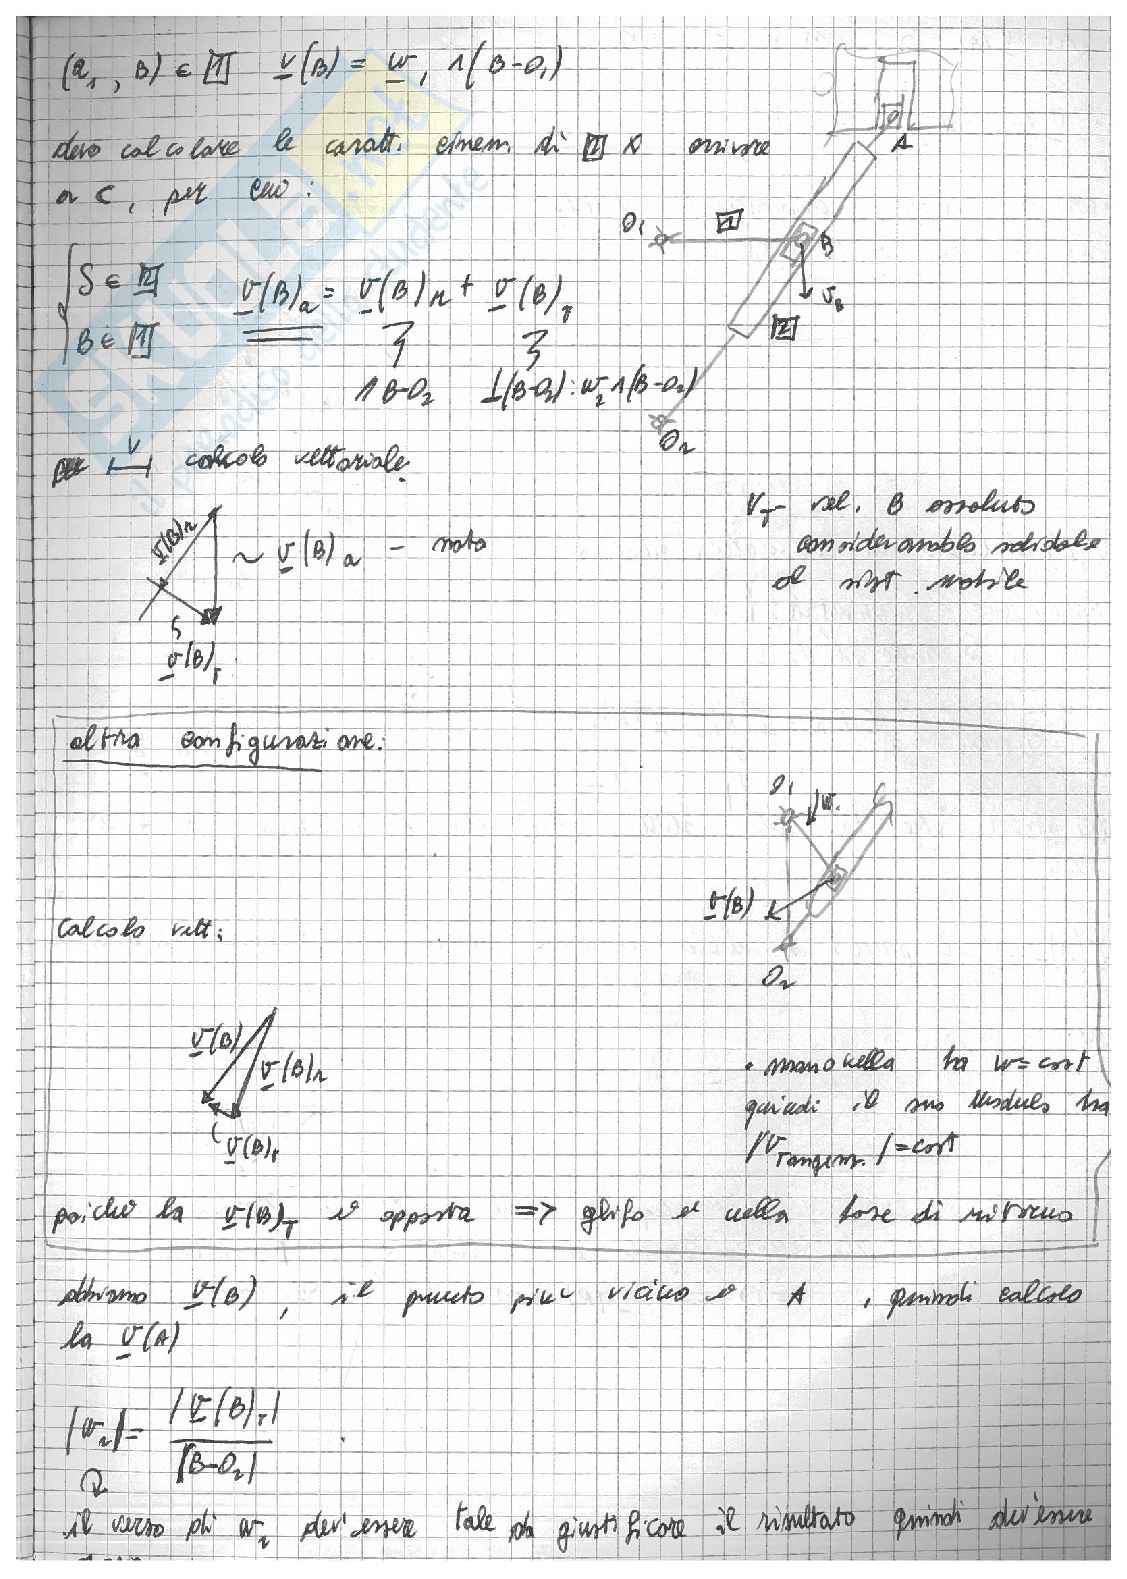 (O₁, B) ∈ 1 v(B) = w₁ ∧ (B-O₁)
devo calcolare le caratt. cinem. di 2 x arrivare
a C, per cui:
S ∈ 2
B ∈ 1
v(B)a = v(B)r + v(B)τ
∥ B-O₂ ⊥(B-O₂): w₂ ∧ (B-O₂)
O₁ 1 B A
v_B
2
O₂
v calcolo vettoriale.
v(B)r
~ v(B)a - nota
v(B)τ
Vτ - vel. B assoluto
considerandolo solidale
al sist. mobile
altra configurazione:
O₁ w.
v(B)
O₂
Calcolo vett:
v(B)
v(B)r
v(B)τ
• manovella ha w=cost
quindi il suo modulo ha
|v Tangenz.| = cost
poichè la v(B)τ è opposta => glifo è nella fase di ritorno
abbiamo v(B), il punto più vicino è A, quindi calcolo
la v(A)
|w₂| = |v(B)τ| / |B-O₂|
il verso di w₂ dev'essere tale da giustificare il risultato quindi dev'essere
SKUOLA.net
il paradiso dello studente